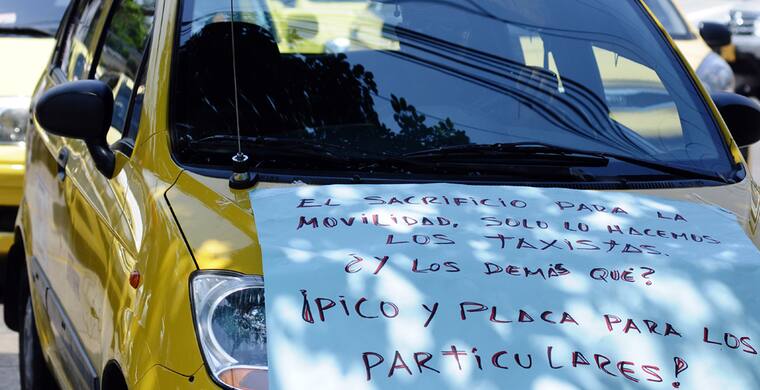 EL SACRIFICIO PARA LA
MOVILIDAD, SOLO LO HACEMOS
LOS TAXISTAS.
¿Y LOS DEMÁS QUÉ?
¡PICO Y PLACA PARA LOS
PARTICULARES!